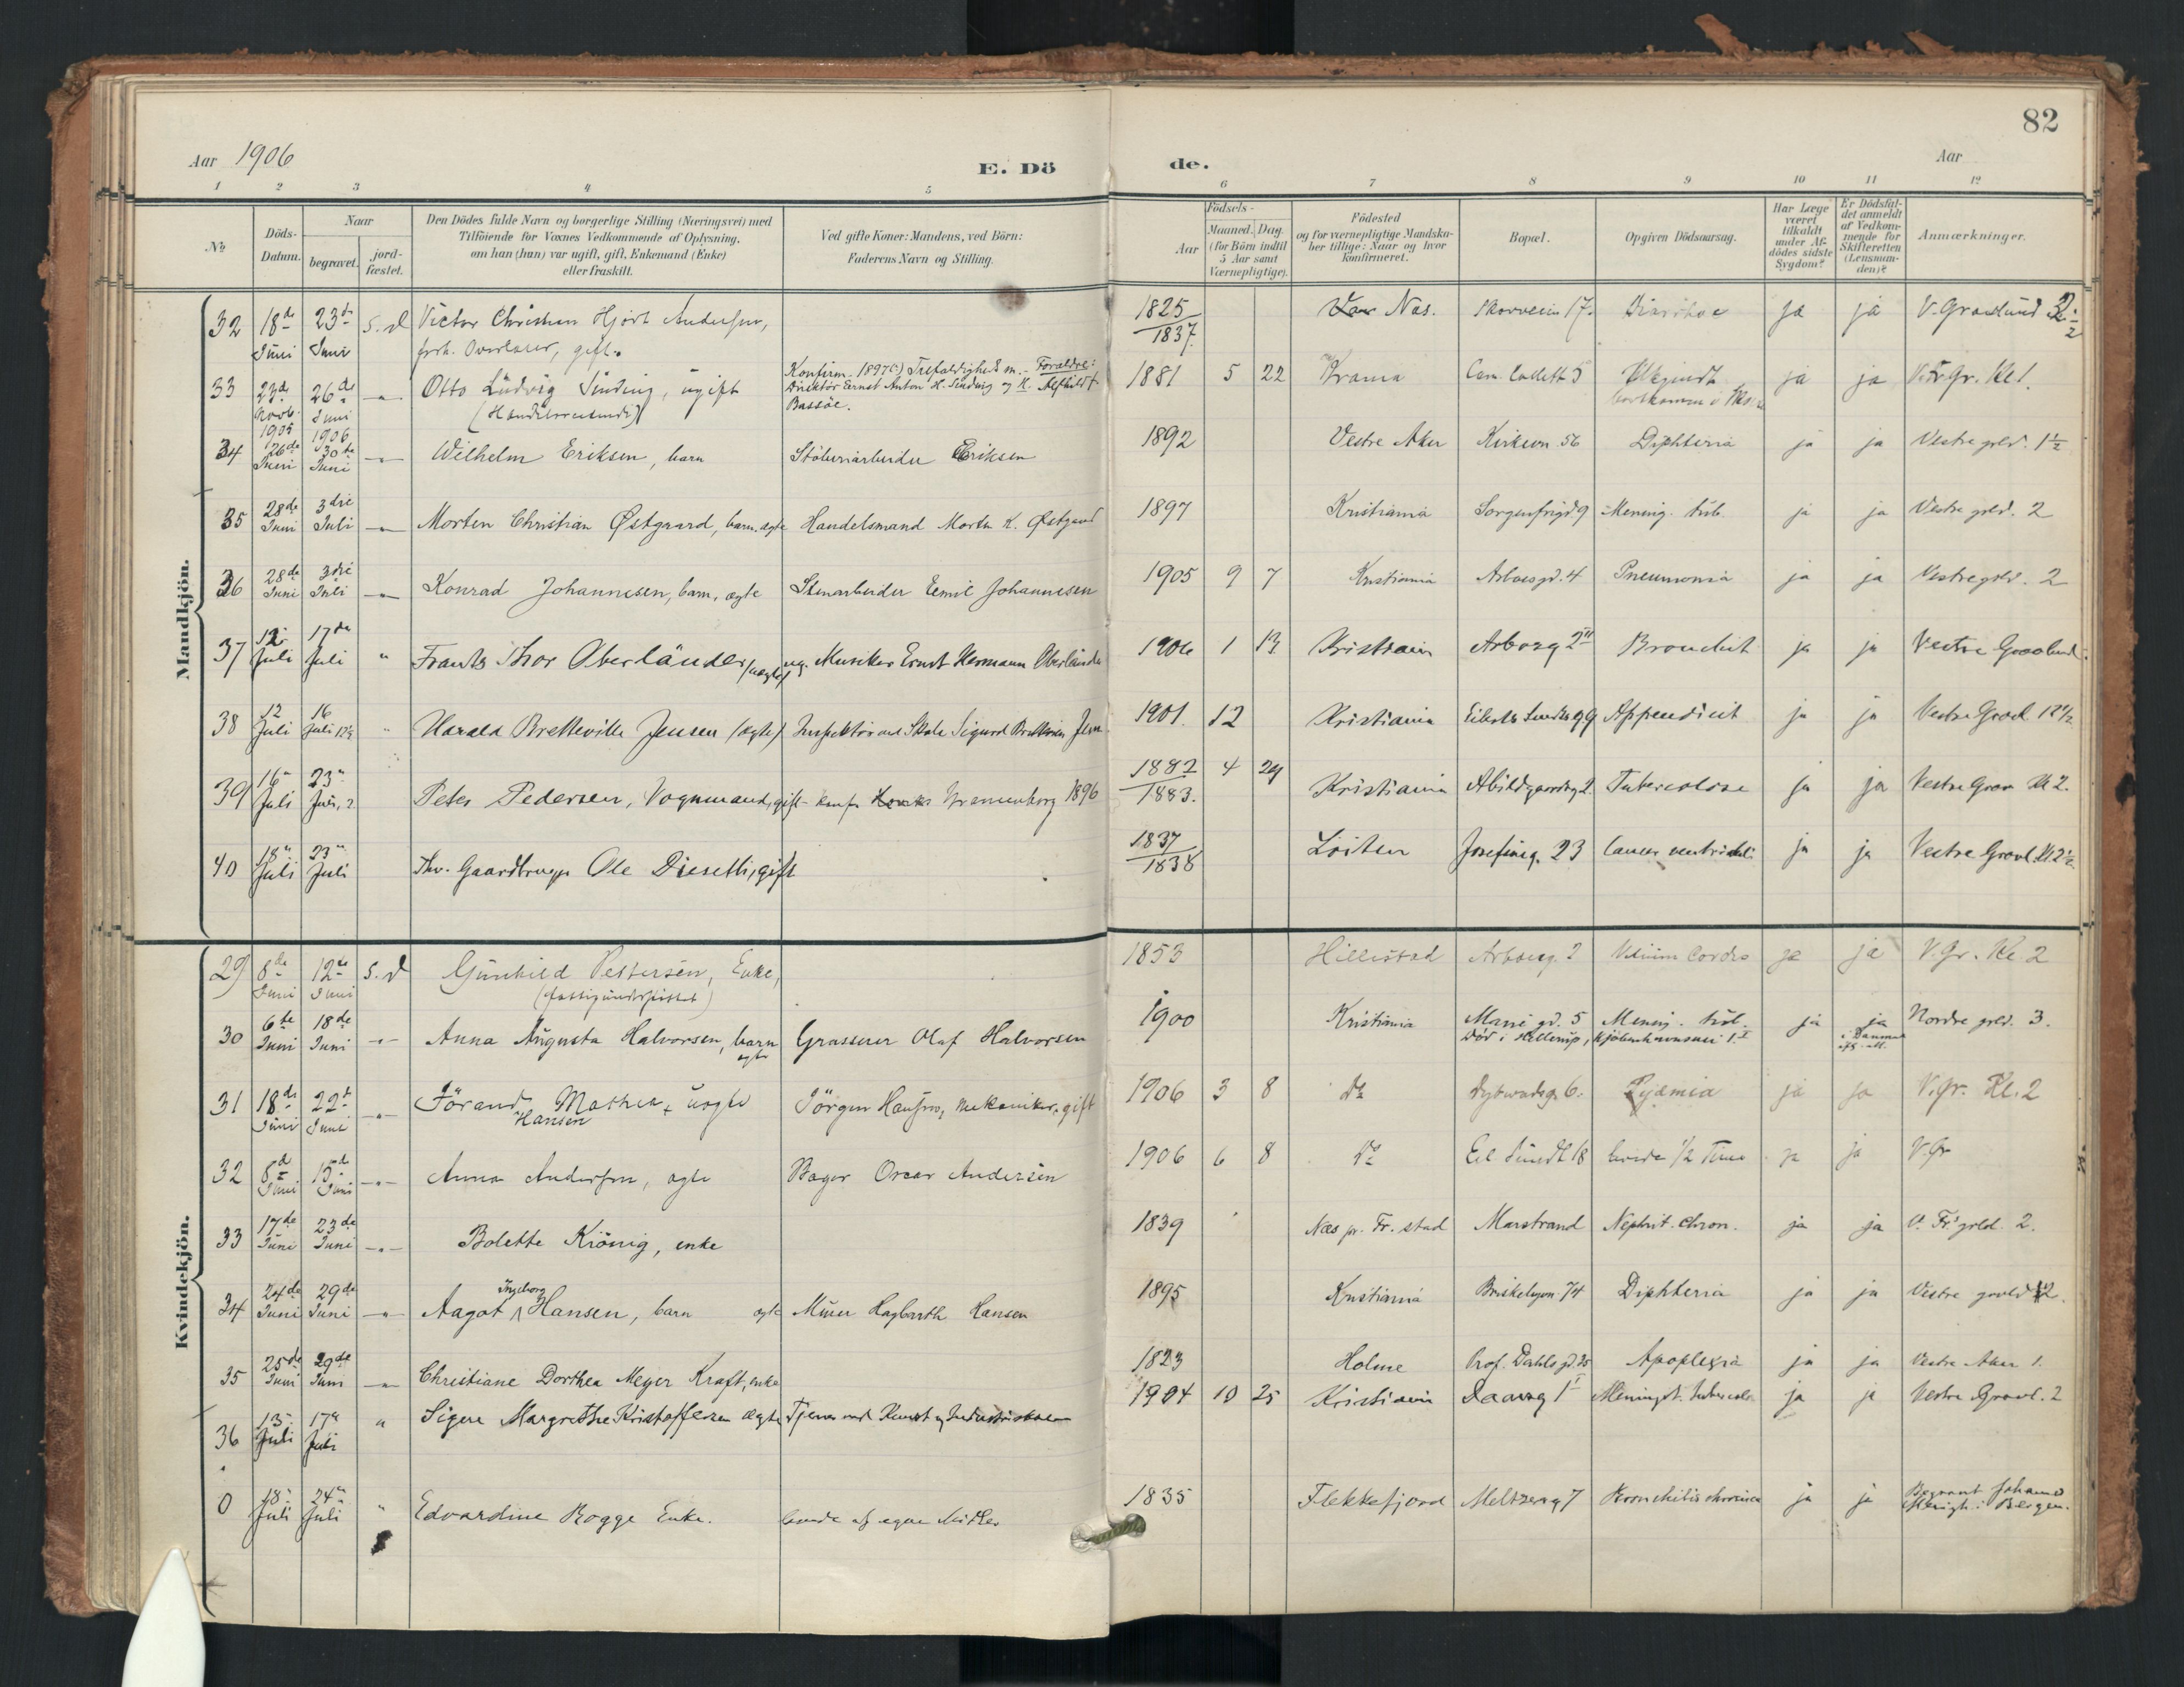 82
Aar 1906
E. Dö
de.
Aar
1 2 3 4 5 6 7 8 9 10 11 12
No.
Döds-Datum.
Naar
begravet.
jord-fæstet.
Den Dödes fulde Navn og borgerlige Stilling (Næringsvei) med
Tilföiende for Voxnes Vedkommende af Oplysning,
om han (hun) var ugift, gift, Enkemand (Enke)
eller fraskilt.
Ved gifte Koner: Mandens, ved Börn:
Faderens Navn og Stilling.
Födsels-
Aar
Maaned. Dag.
(for Börn indtil
5 Aar samt
Værnepligtige).
Födested
og for værnepligtige Mandska-
ber tillige: Naar og hvor
konfirmeret.
Bopæl.
Opgiven Dödsaarsag.
Har Læge
været
tilkaldt
under Af-
dödes sidste
Sygdom?
Er Dödsfal-
det anmeldt
af Vedkom-
mende for
Skifteretten
(Lensman-
den)?
Anmærkninger.
Mandkjön.
32 18de Juni 23de Juni s. d. Victor Christian Hjort Andersen, 1825/1837 Nas. 17. ja ja V. Gravlund
gift.
33 26de Juni Otto Ludvig Sinding, ugift 1881 5 22 Krania Cam. Colletts 5 ja ja Kl 1.
Konfirm. 1897 Trefoldigheds m. - Forældre:
Direktör Ernst Anton H. Sinding og H.
Bassöe.
1905 1906
34 26de Juni 30te Juni Wilhelm Eriksen, barn Stöberiarbeider Eriksen 1892 Vestre Aker Kirkevn. 56 Diphteria ja ja Vestre grld. 1½
35 28de Juni 3die Juli Morten Christian Østgaard, barn. ægte Handelsmand Morten K. Østgaard 1897 Kristiania Sorgenfrigd 9 Mening. tub. ja ja Vestre grld. 2
36 28de Juni 3die Juli Konrad Johannesen, barn, ægte Stenarbeider Emil Johannesen 1905 9 7 Kristiania Arbosgd. 4 Pneumonia ja ja Vestre grld. 2
37 12 Juli 17de Juli " Frants Thor Oberländer Musiker Ernst Hermann Oberländer 1906 1 13 Kristiania Arbosg 2 Bronchit ja ja Vestre Gravlund.
38 12 Juli 16 Juli 12½ " Harald Bretteville Jensen (ægte) Inspektör ved Skole Sigurd Bretteville Jensen 1901 12 Kristiania Eilerts Sundtsg 9 Appendicit ja ja Vestre Gravl 12½
39 16 Juli 23 Juli, 2 Peter Pedersen, Vognmand, gift - konf. Grønneborg 1896 1882/1883. 4 29 Kristiania Abildgaardsg 2. Tuberculose ja ja Vestre Grav Kl 2.
40 18 Juli 23 Juli Fhv. Gaardbruger Ole Dieseth, gift 1837/1838 Löiten Josefineg. 23 Cancer ventriculi ja ja Vestre Gravl. Kl 2½
Kvindekjön.
29 8de Juni 12te Juni s. d Gunhild Pettersen, Enke, 1853 Hillestad Arbosg. 2 Vitium Cordis ja ja V. Gr. Kl. 2
30 6te Juni 18de Juni Anna Augusta Halvorsen, barn ægte Grasserer Olaf Halvorsen 1900 Kristiania Marie gd. 5 Mening. tub. ja ja Nordre grld. 3.
Död i Hellerup,
31 18de Juni 22de Juni Mathea Hansen, uægte Jörgen Hansen, mekaniker, gift 1906 3 8 Do Dybwadsg. 6. Pyæmia ja ja V. Gr. Kl. 2
32 8de Juni 15de Juni Anna Andersen, ægte Bager Oscar Andersen 1906 6 8 Do Eil Sundt 18 levede 1/2 Time ja ja V. Gr
33 17de Juni 23de Juni Bolette Krönig, enke 1839 Næs pr. Fr. stad Marstrand Nephrit. chron. ja ja V. Fr's grld. 2.
34 24de Juni 29de Juni Aagot Ingeborg Hansen, barn ægte Murer Hagbarth Hansen 1895 Kristiania Briskebyvn 74 Diphteria ja ja Vestre gravld 2.
35 25de Juni 29de Juni Christiane Dorthea Meyer Kraft, enke 1823 Holme Prof. Dahls gd. 25 Apoplexia ja ja Vestre Aker 1.
36 13 Juli 17 Juli " Signe Margrethe Kristoffersen ægte Tjener ved Kunst og Industriskolen 1904 10 25 Kristiania Daasg 1 Meningit. tubercul. ja ja Vestre Gravl. 2
0 18 Juli 24 Juli " Edvardine Rogge Enke. levede af egne Midler 1835 Flekkefjord Meltzersg 7 Bronchitis chronica ja ja Begravet Johannes Menigh. i Bergen.